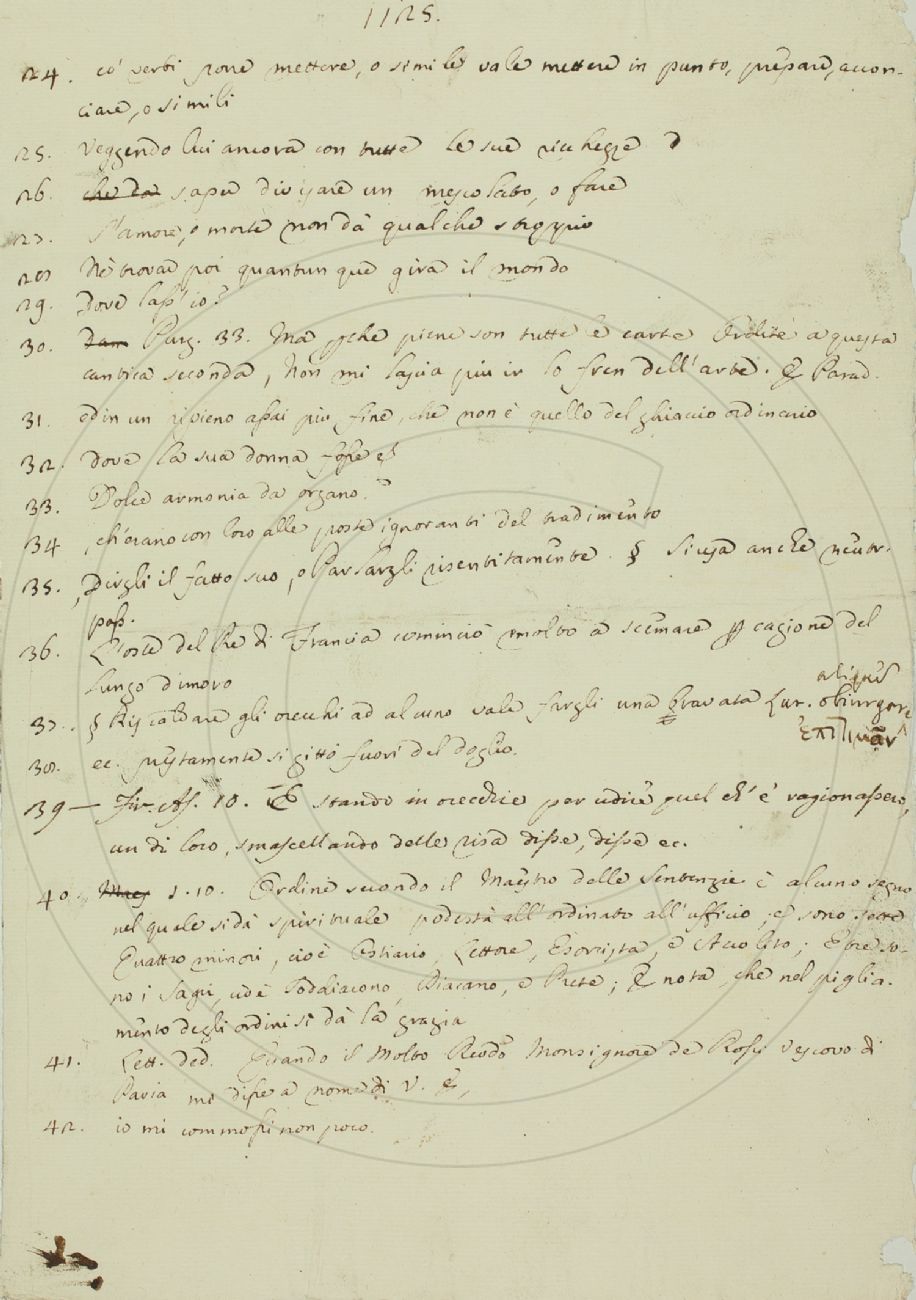 1125.
24. co' verbi porre mettere, o simile, vale mettere in punto, preparare, accon-
ciare, o simili
25. Veggendo lui ancora con tutte le sue richezze
26. che da saper divisare un mescolato, o fare
27. S'amore, o morte non dà qualche stroppio
28 Nè trovar poi quantunque gira il mondo
29. Dove lass'io?
30. Dan Purg. 33. Ma pche piene son tutte le carte Ordite a questa
cantica seconda, Non mi lascia più ir lo fren dell'arte. E Parad.
31. ed in un ripieno assai più fine, che non è quello del ghiaccio ordinario
32. Dove la sua donna fosse
33. Dolce armonia da organo.
34 ch'erano con loro alle poste ignoranti del tradimento
35. Dirgli il fatto suo, o Parlargli risentitamente. § Si usa anche neutr.
pass.
36. L'oste del Re di Francia cominciò molto a scemare p cagione del
lungo dimoro
37. § Riscaldare gli orecchi ad alcuno vale fargli una bravata Lat. obiurgare
aliquem
ἐπιτιμᾶν
38. ec. prestamente si gittò fuori del doglio.
39 — Fir. As. 10. E stando in orecchie per udire quel ch'e' ragionassero,
un di loro, smascellando delle risa disse, disse ec.
40. Maes 1. 10. Ordine secondo il Maestro delle Sentenzie è alcuno segno
nel quale si dà spirituale podestà all'ordinato all'ufficio, e sono sette
Quattro minori, cioè Ostiario, Lettore, Esorcista, e Accolito; E tre so-
no i Sagri, cioè Soddiacono, Diacano, e Prete; E nota, che nel piglia-
mento degli ordini si dà la grazia
41. Lett. ded. Quando il Molto Revdo Monsignore de Rossi Vescovo di
Pavia mi disse a nome di V. E,
42. io mi commossi non poco.